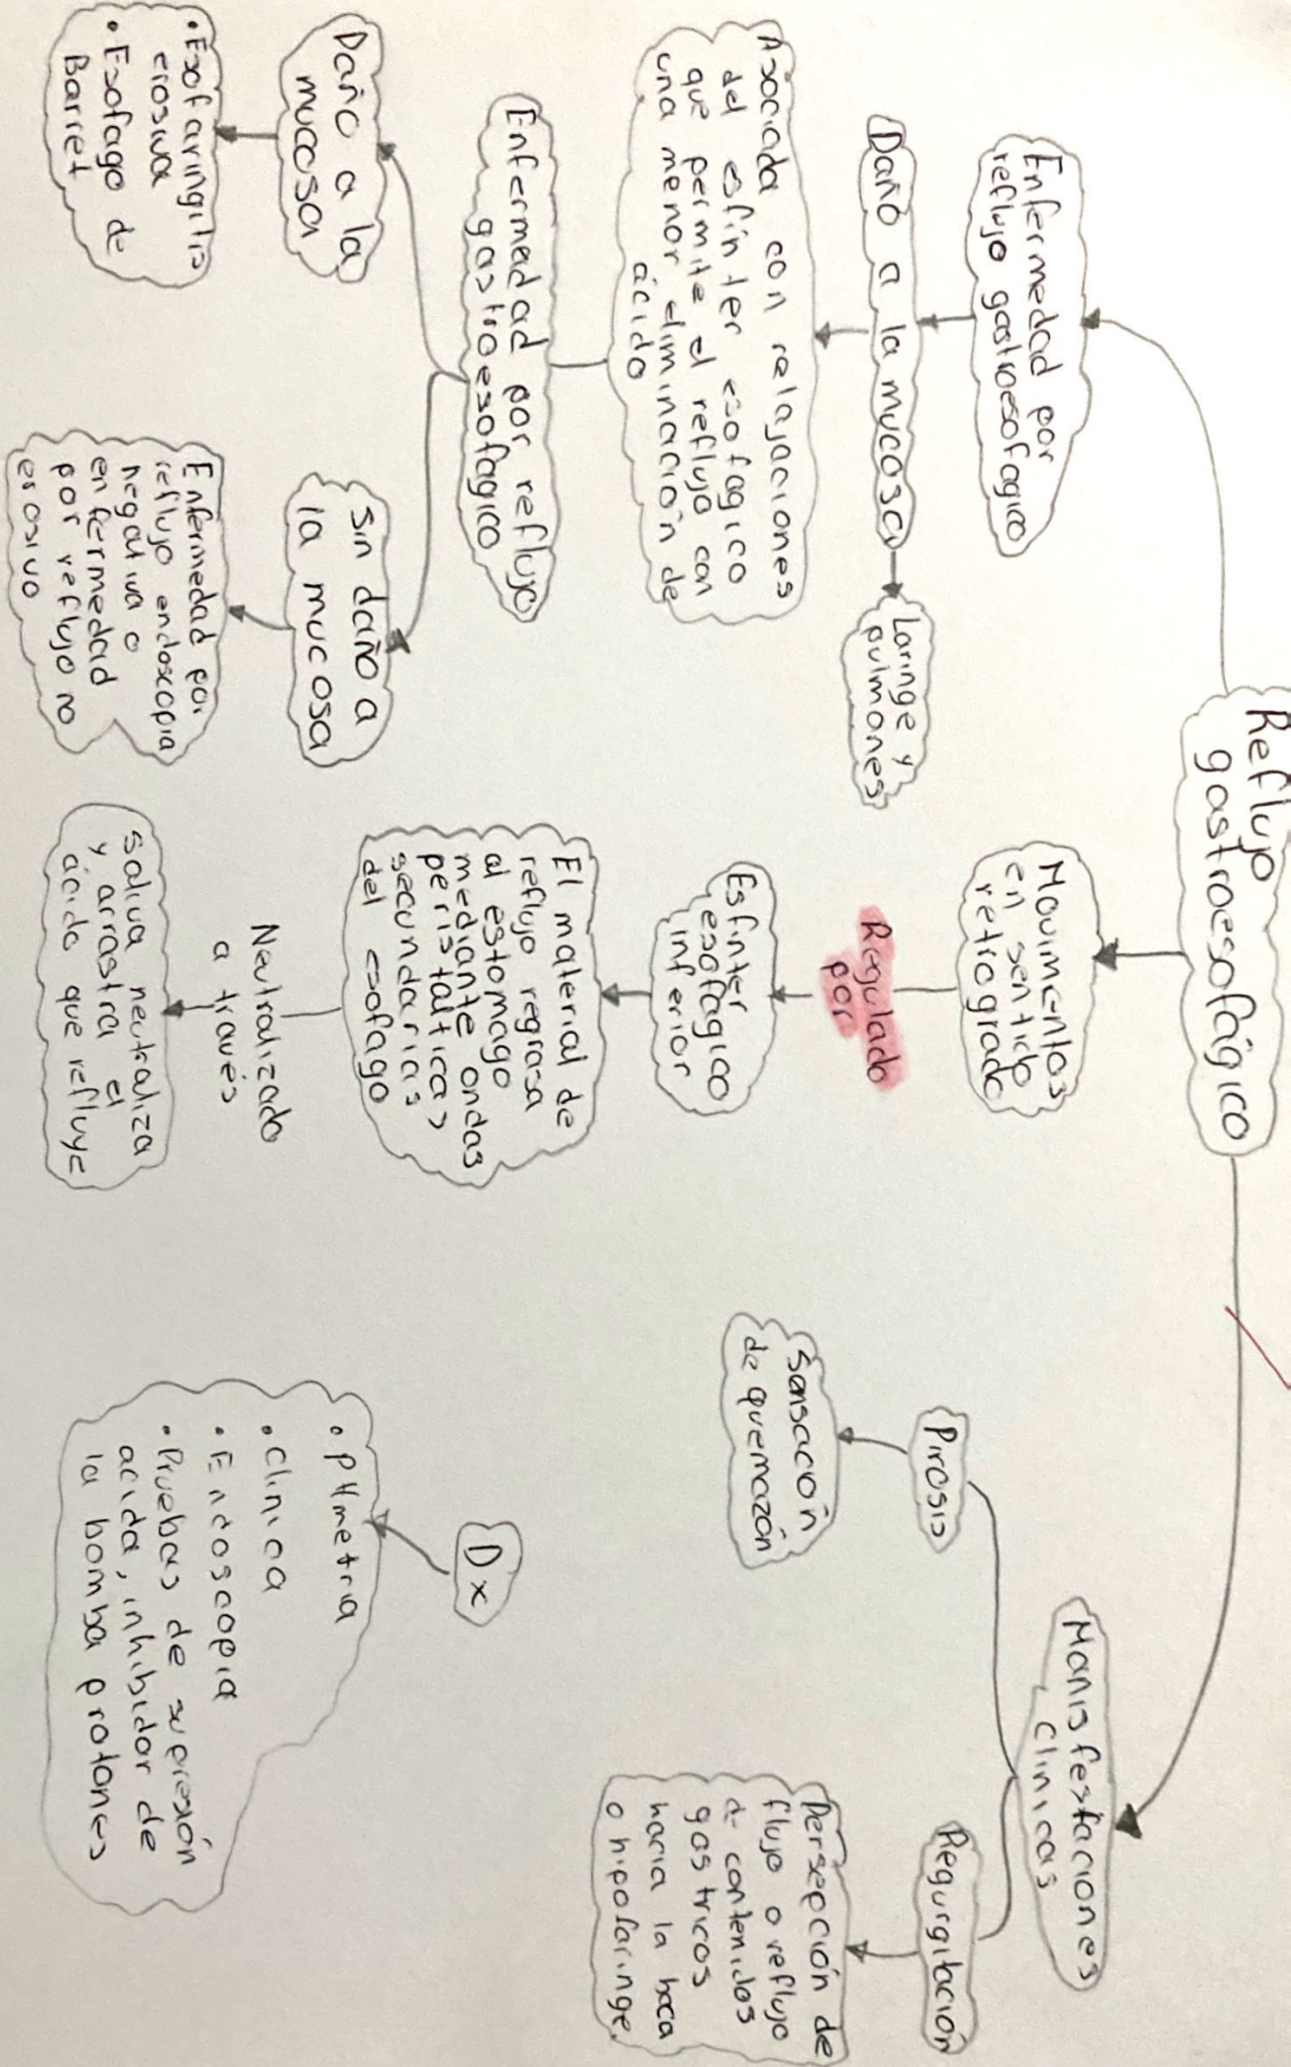 Reflujo
gastroesofágico
Enfermedad por
reflujo gastroesofagico
Daño a la mucosa
Laringe y
pulmones
Asociada con relajaciones
del esfinter esofagico
que permite el reflujo con
una menor eliminación de
ácido
Enfermedad por reflujo
gastroesofagico
Daño a la
mucosa
• Esofaringitis
erosiva
• Esofago de
Barret
Sin daño a
la mucosa
Enfermedad por
reflujo endoscopia
negativa o
enfermedad
por reflujo no
erosivo
Movimientos
en sentido
retrogrado
Regulado
por
Esfinter
esofagico
inferior
El material de
reflujo regrasa
al estomago
mediante ondas
peristalticas
secundarias
del esofago
Neutralizado
a través
saliva neutraliza
y arrastra el
ácido que refluye
Manisfestaciones
Clinicas
Pirosis
Sensación
de quemazón
Regurgitación
Persepción de
flujo o reflujo
de contenidos
gastricos
hacia la boca
o hipofaringe.
Dx
• pHmetria
• Clinica
• Endoscopia
• Pruebas de supresión
acida, inhibidor de
la bomba protones